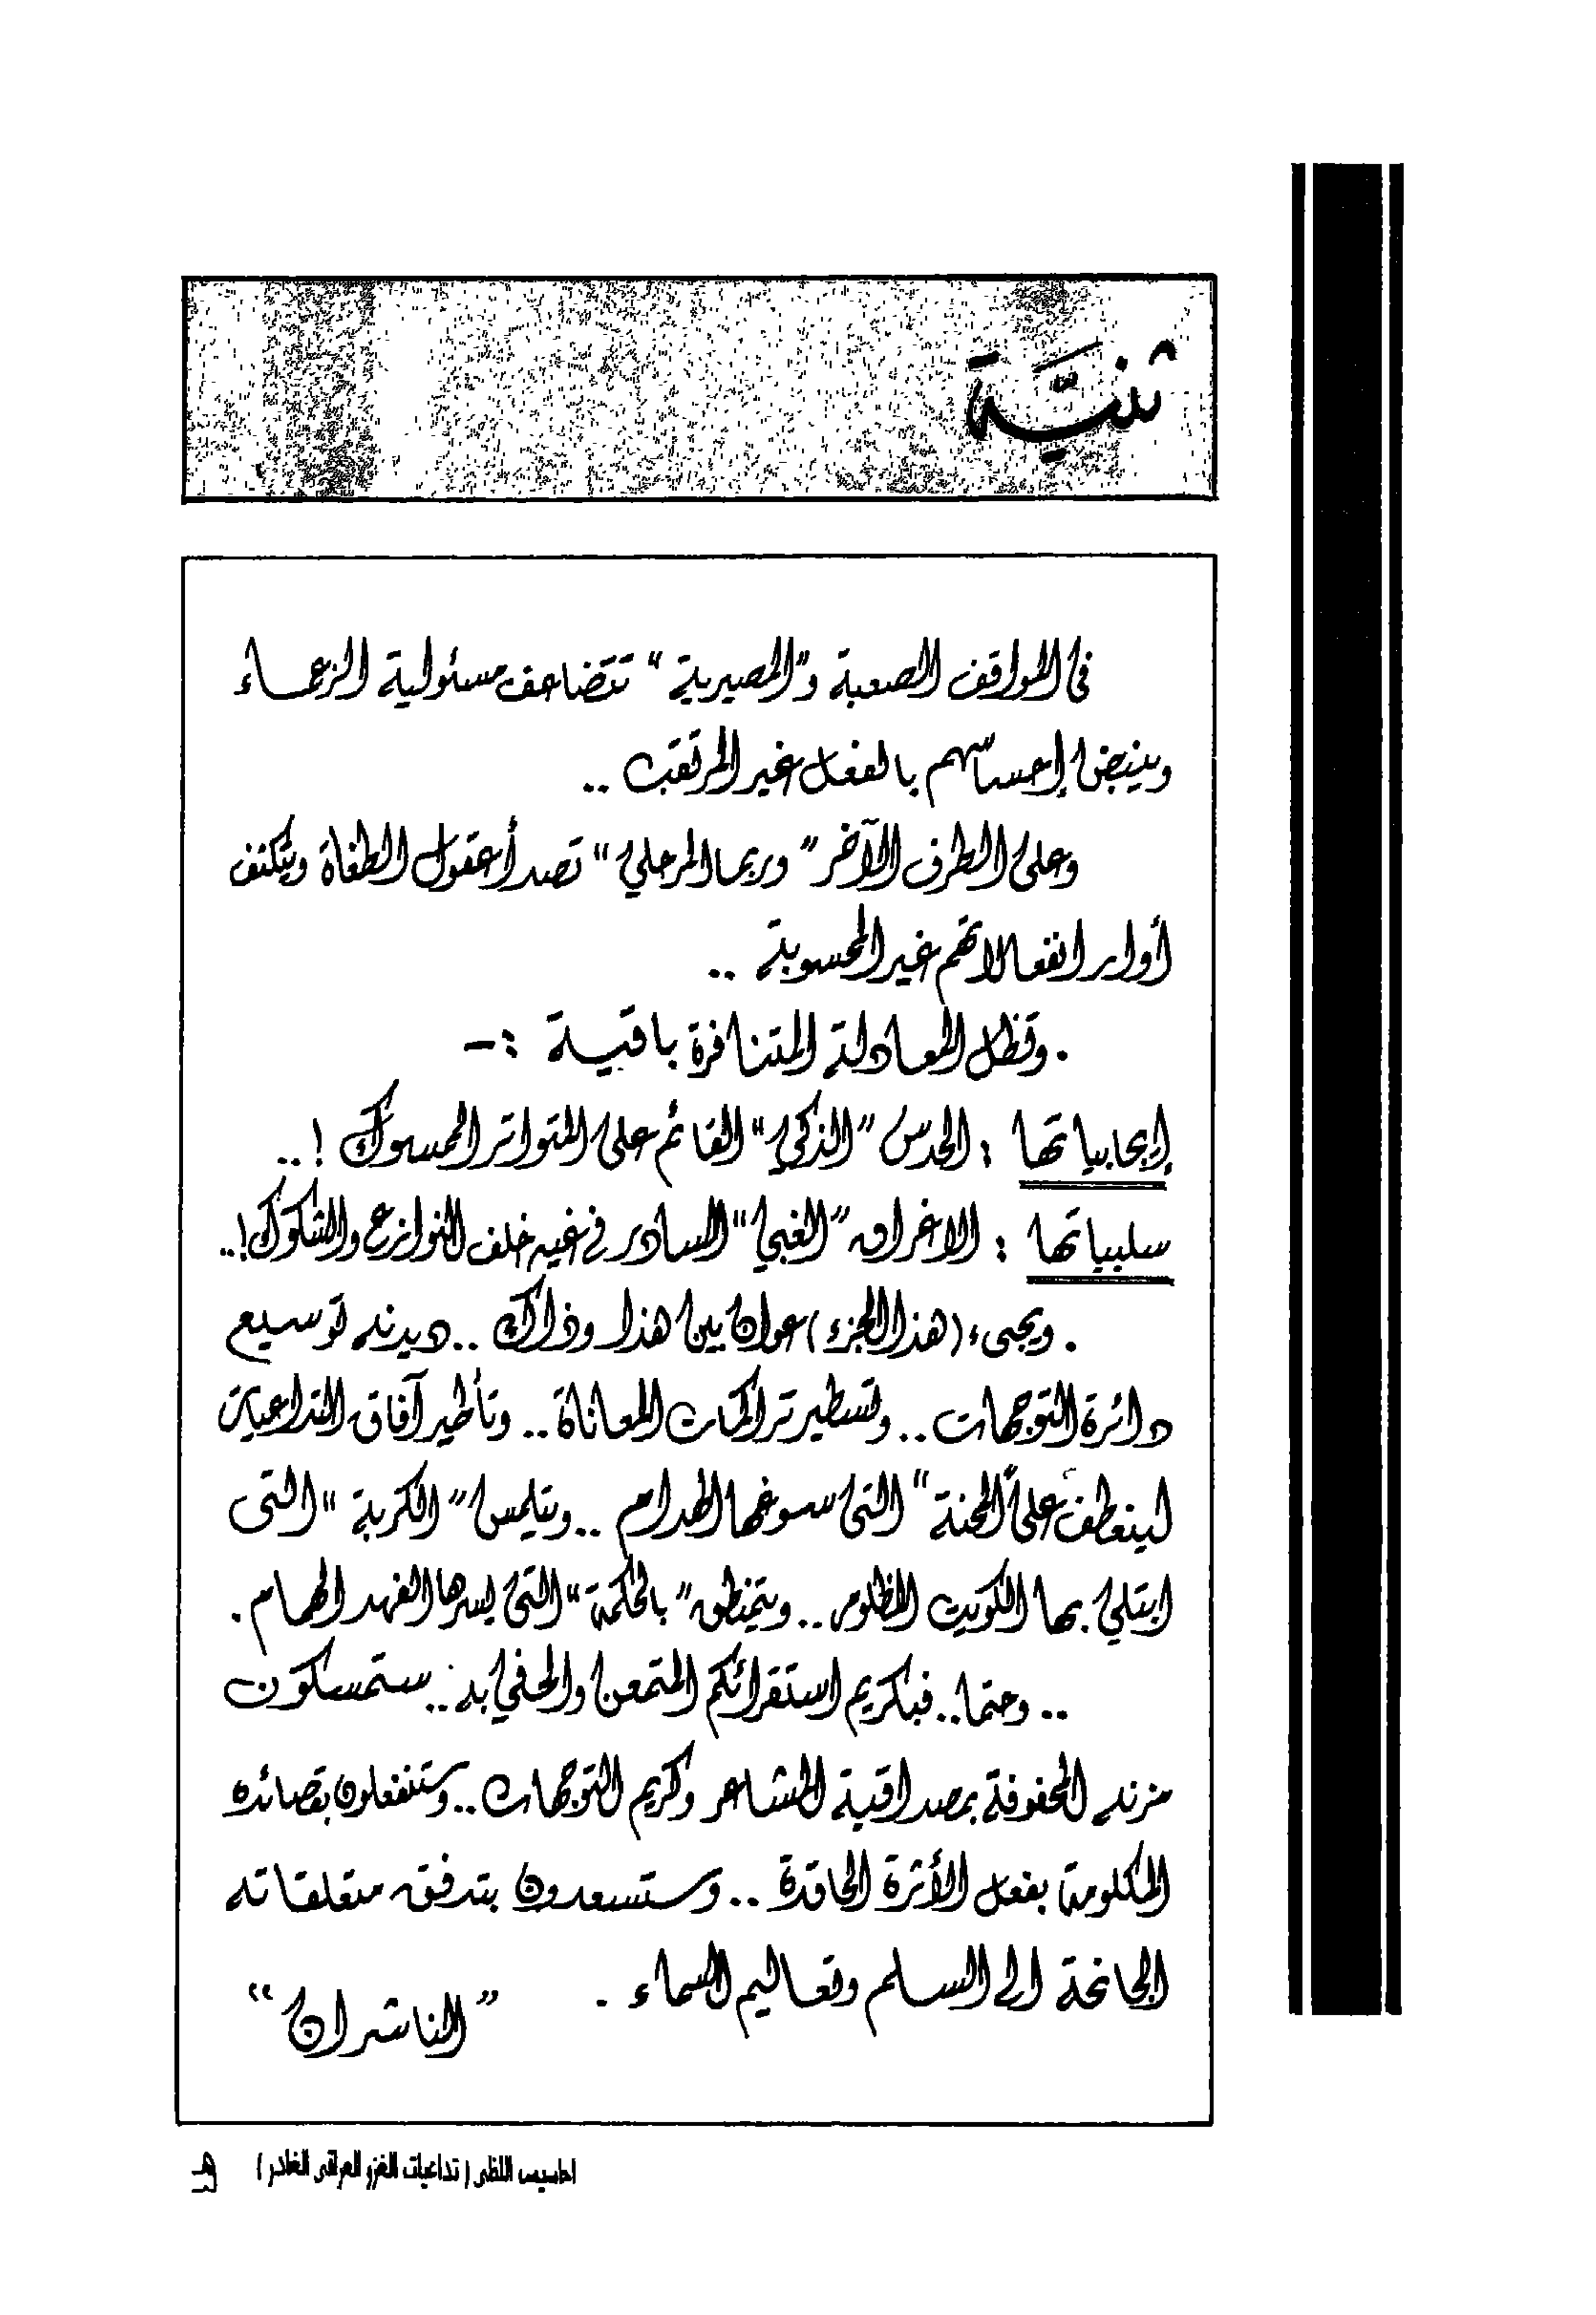 ثنيَّة
في المواقف الصعبة و"المصيرية" تتضاعف مسئولية الزعماء
وينبض إحساسهم بالفعل غير المرتقب ..
وعلى الطرف الآخر "وربما المرحلي" تصدأ عقول الطغاة ويتكثف
أوار انفعالاتهم غير المحسوبة ..
. وتظل المعادلة المتنافرة باقية :-
إيجابياتها : الحدس "الذكي" القائم على المتواتر الممسوك !..
سلبياتها : الاغراق "الغبي" السادر في غيه خلف النوازع والشكوك!..
. ويجىء (هذا الجزء) عوان بين هذا وذاك .. ديدنه توسيع
دائرة التوجهات .. وتسطير تراكمات المعاناة .. وتأطير آفاق التداعيات
لينعطف على "المحنة" التي سوغها الهدام .. ويتلمس "الكربة" التى
ابتلي بها الكويت المظلوم .. ويتمنطق "بالحكمة" التي يسرها الفهد الهمام .
.. وحتما .. فبكريم استقرائكم المتمعن والحفي به .. ستمسكون
مزنه المحفوفة بمصداقية المشاعر وكريم التوجهات .. وستنفعلون بقصائده
المكلومة بفعل الأثرة الحاقدة .. وستسعدون بتدفق متعلقاته
الجانحة الى السلم وتعاليم السماء .
"الناشران"
احاسيس اللظى (تداعيات الغزو العراقى الغادر)